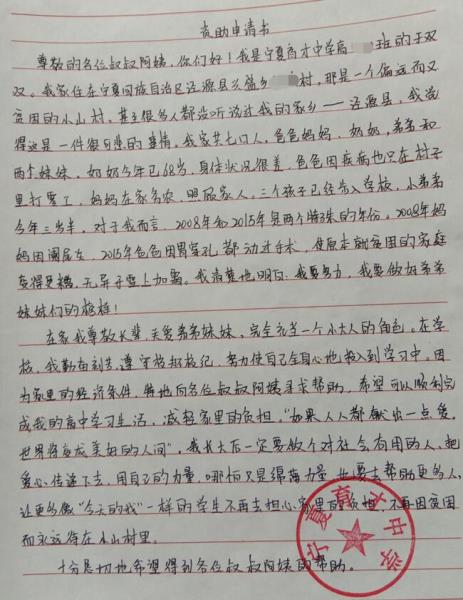 资助申请书
尊敬的各位叔叔阿姨,你们好!我是宁夏育才中学高 班的于双
双。我家住在宁夏回族自治区泾源县兴盛乡 村,那是一个偏远而又
贫困的小山村,甚至很多人都没听说过我的家乡——泾源县,我觉
得这是一件很可悲的事情。我家共七口人,爸爸妈妈、奶奶,弟弟和
两个妹妹,奶奶今年已68岁,身体状况很差,爸爸因疾病也只在村子
里打零工,妈妈在家务农,照顾家人。三个孩子已经步入学校,小弟弟
今年三岁半。对于我而言,2008年和2015年是两个特殊的年份。2008年妈
妈因阑尾炎,2015年爸爸因胃穿孔都动过手术,使原本就贫困的家庭
变得更糟,无异于雪上加霜。我清楚地明白:我要努力,我要做好弟弟
妹妹们的榜样!
在家我尊敬长辈,关爱弟弟妹妹,完全充当一个小大人的角色。在学
校,我勤奋刻苦,遵守校规校纪,努力使自己全身心地投入到学习中。因
为家里的经济条件,特地向各位叔叔阿姨寻求帮助,希望可以顺利完
成我的高中学习生活,减轻家里的负担,“如果人人都献出一点爱,
世界将变成美好的人间”,我长大后一定要做个对社会有用的人,把
爱心传递下去,用自己的力量,哪怕只是绵薄力量,也要去帮助更多人,
让更多像“今天的我”一样的学生不再去担心家里的负担,不再因贫困
而永远待在小山村里。
十分恳切地希望得到各位叔叔阿姨的帮助。
宁夏育才中学